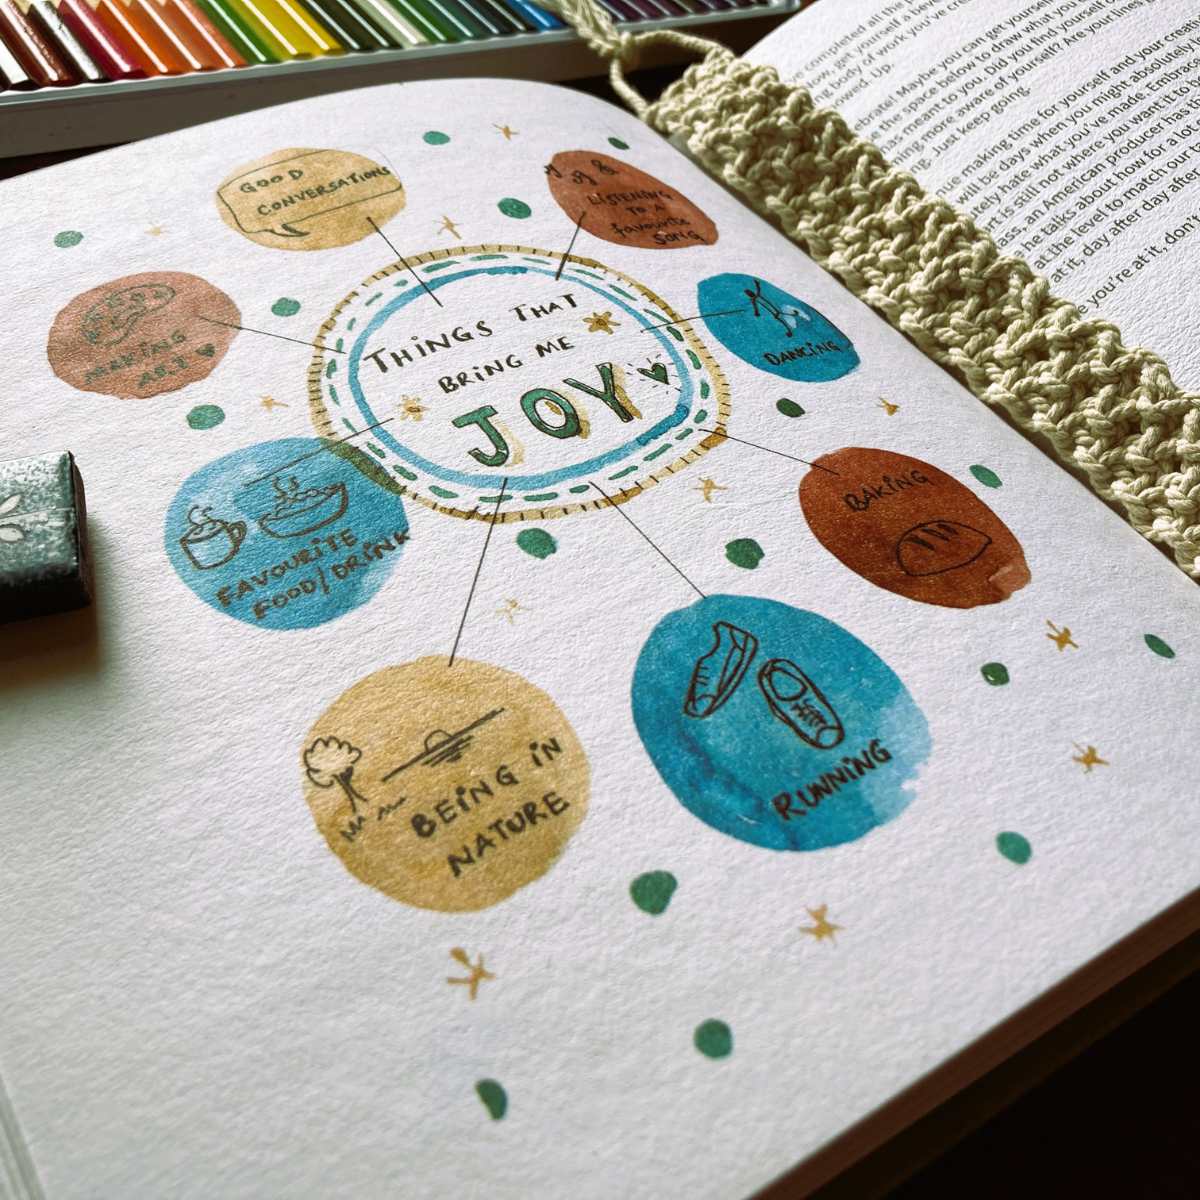 THINGS THAT
BRING ME
JOY
GOOD
CONVERSATIONS
LISTENING
TO A
favourite
SONG
DANCING
BAKING
RUNNING
BEING IN
NATURE
FAVOURITE
FOOD/DRINK
MAKING
ART
completed all the
now, get yourself a
body of work you've
owed. Up.
ebrate! Maybe you can get yourself
the space below to draw what you
has meant to you. Did you find yourself
ming more aware of yourself? Are your lines
ng. Just keep going.
nue making time for yourself and your
will be days when you might absolutely
ely hate what you've made.
it is still not where you want it to
lass, an American producer has
he talks about how for a lot
at the level to match our
at it, day after day after
e you're at it, don't